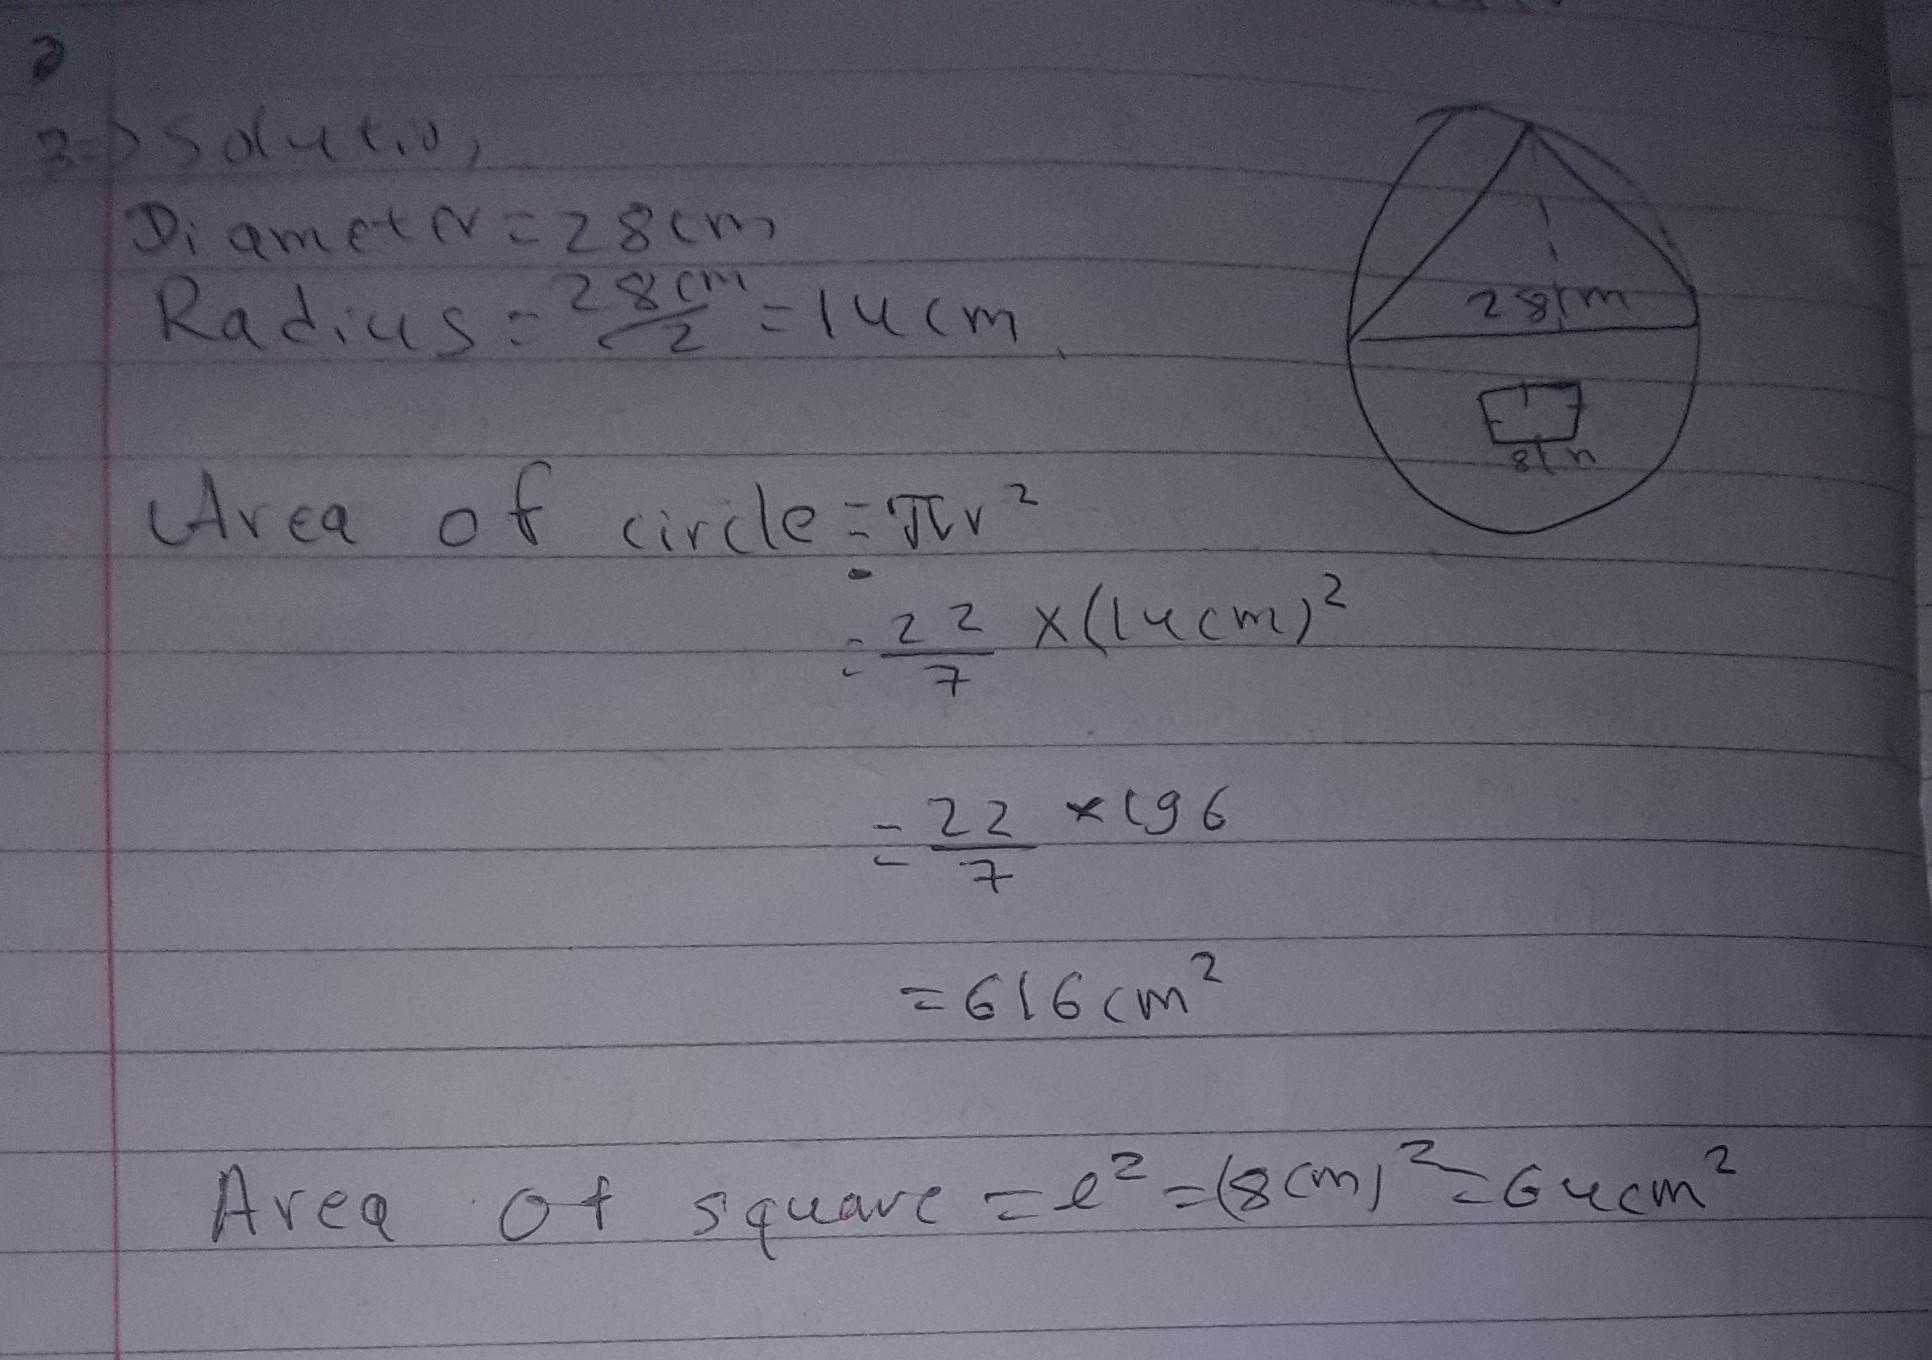 2
3=> Solutio,
Diameter = 28cm
Radius = 28cm/2 = 14cm
28cm
8cm
Area of circle = πr²
= 22/7 × (14cm)²
= 22/7 × 196
= 616cm²
Area of square = l² = (8cm)² = 64cm²